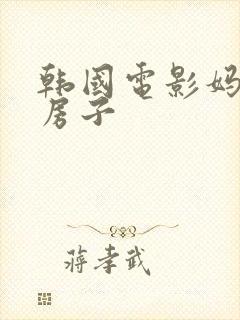 韩国电影妈
房子
蒋孝武